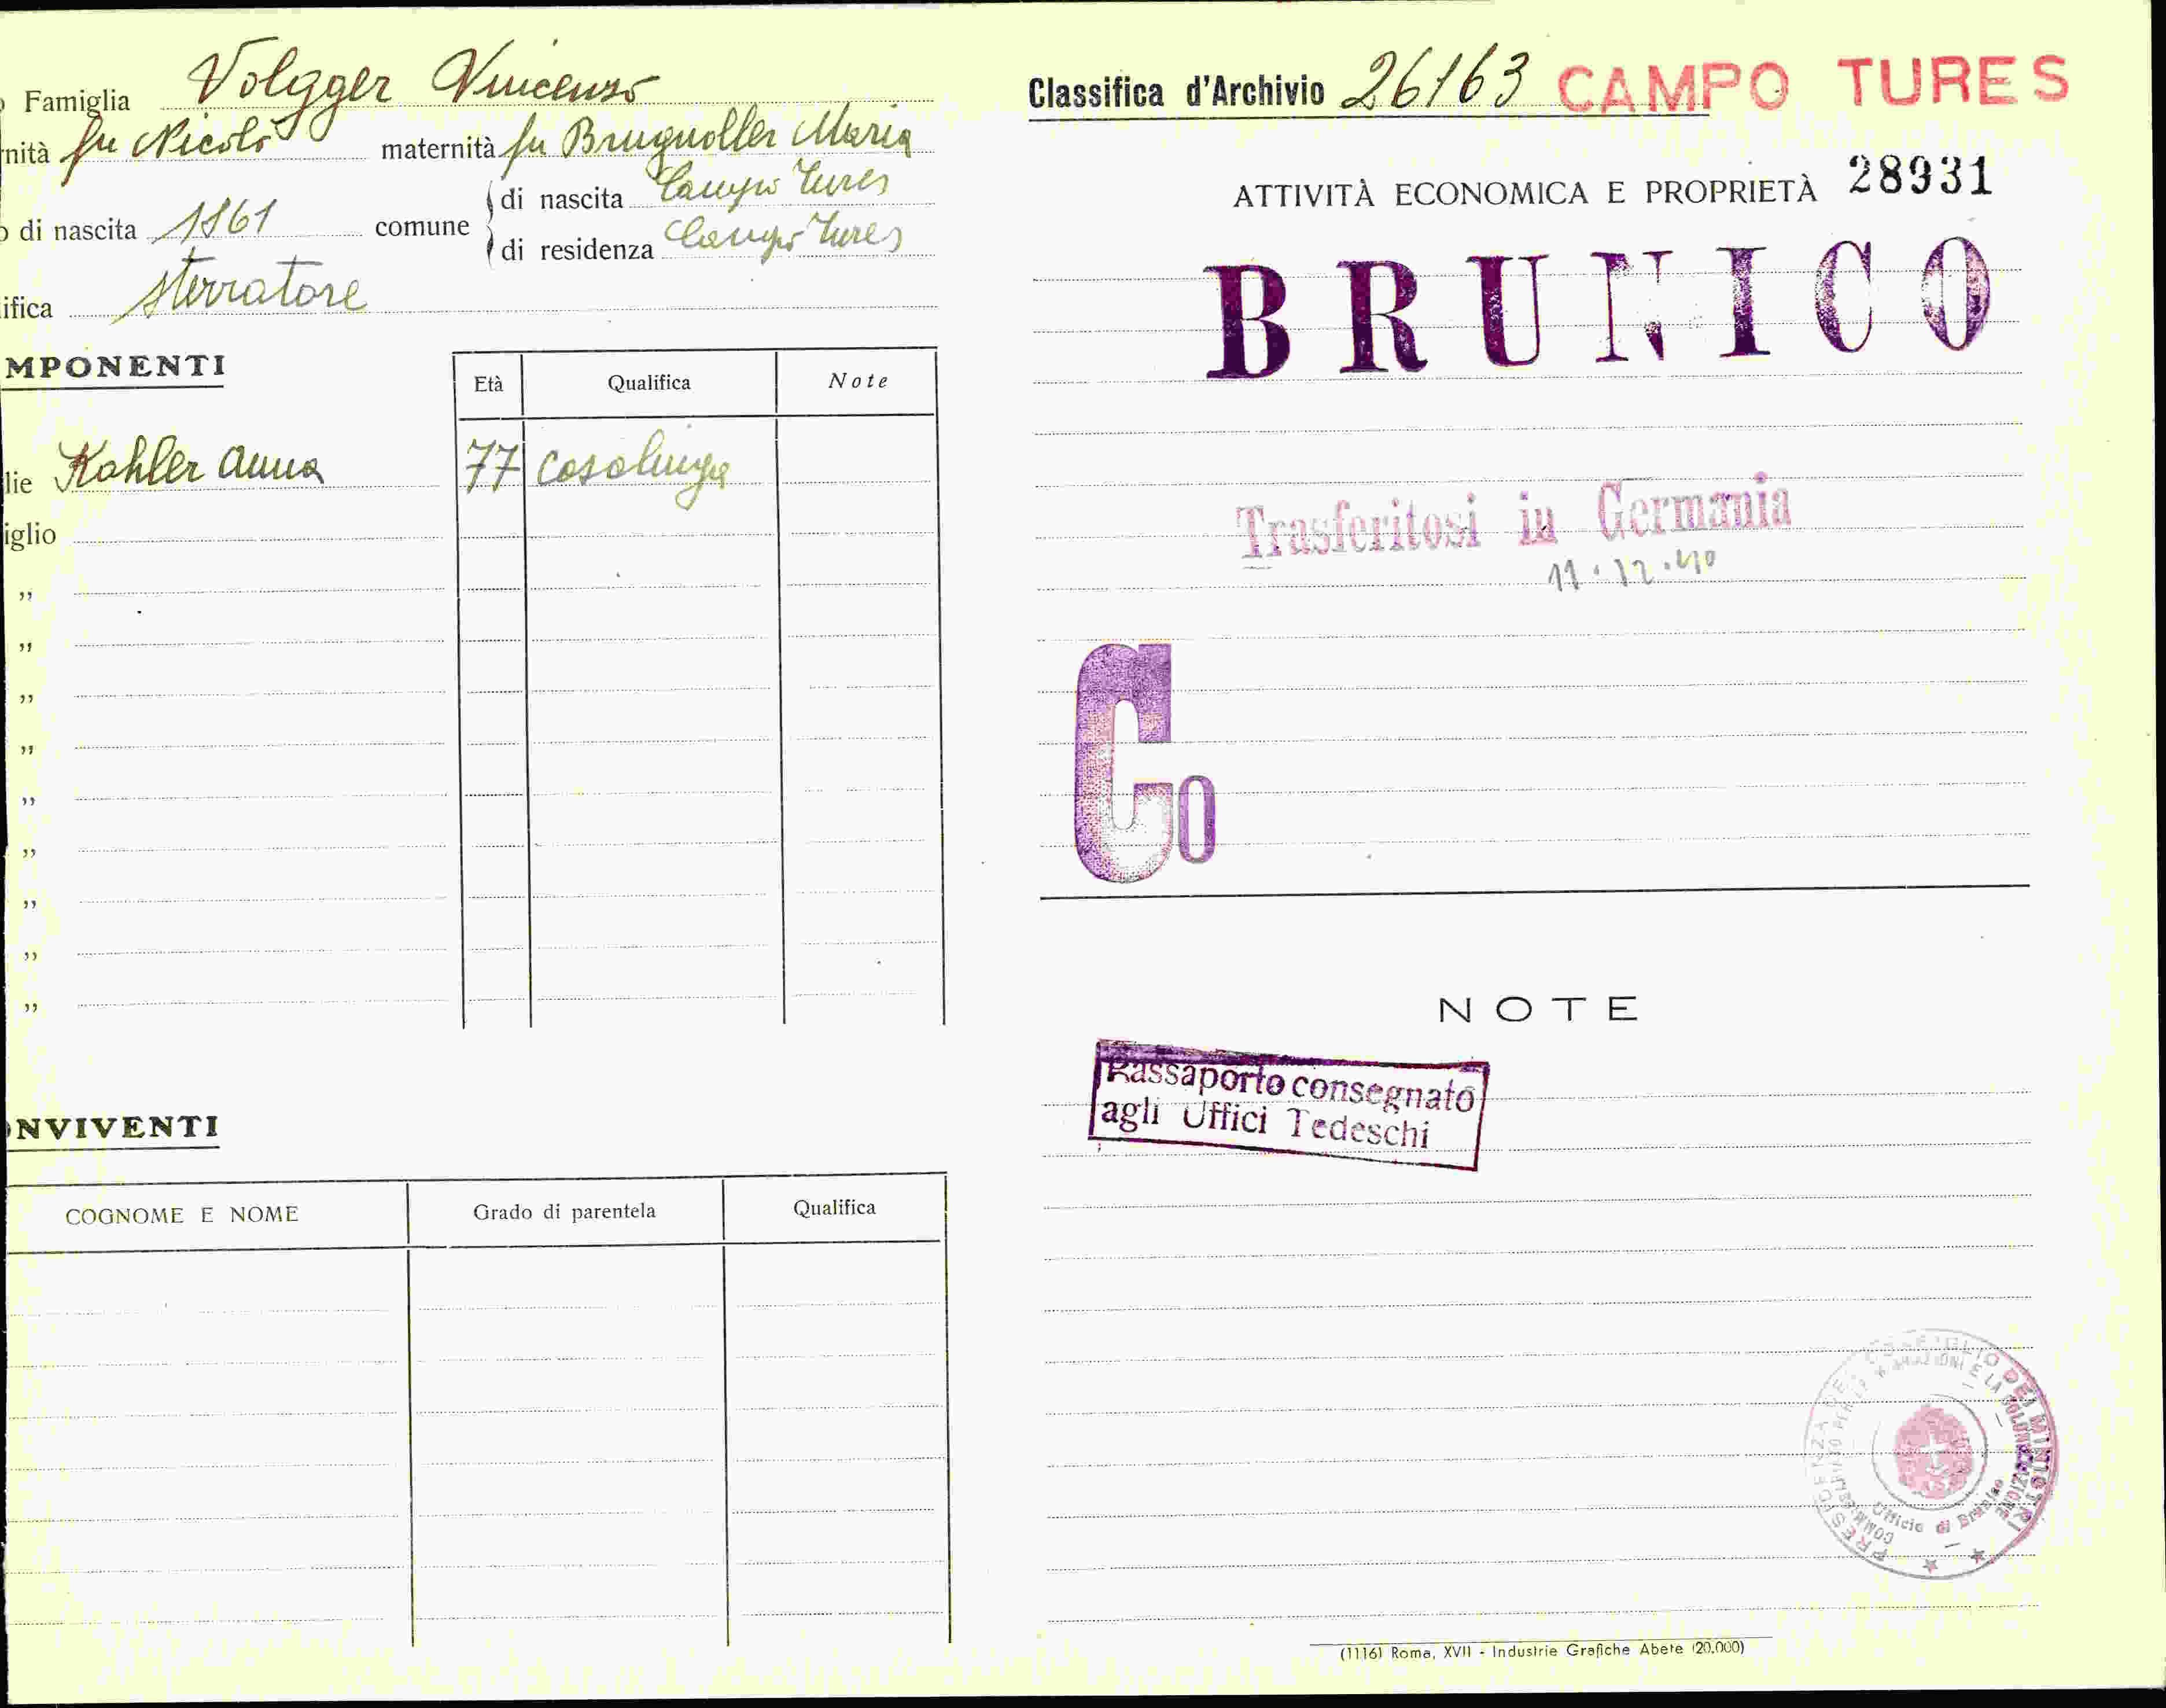 Famiglia Volgger Vincenzo
nità fu Nicolò maternità fu Brugnoller Maria
di nascita 1861 comune di nascita Campo Tures
di residenza Campo Tures
ifica sterratore
MPONENTI
Età Qualifica Note
lie Kohler Anna 77 casalinga
iglio
„
„
„
„
„
„
„
„
„
NVIVENTI
COGNOME E NOME Grado di parentela Qualifica
Classifica d'Archivio 26163 CAMPO TURES
ATTIVITÀ ECONOMICA E PROPRIETÀ 28931
BRUNICO
Trasferitosi in Germania
11.12.40
Co
NOTE
Passaporto consegnato
agli Uffici Tedeschi
PRESIDENZA DEL CONSIGLIO DEI MINISTRI
Ufficio di Brunico
(1116) Roma, XVII - Industrie Grafiche Abete (20.000)